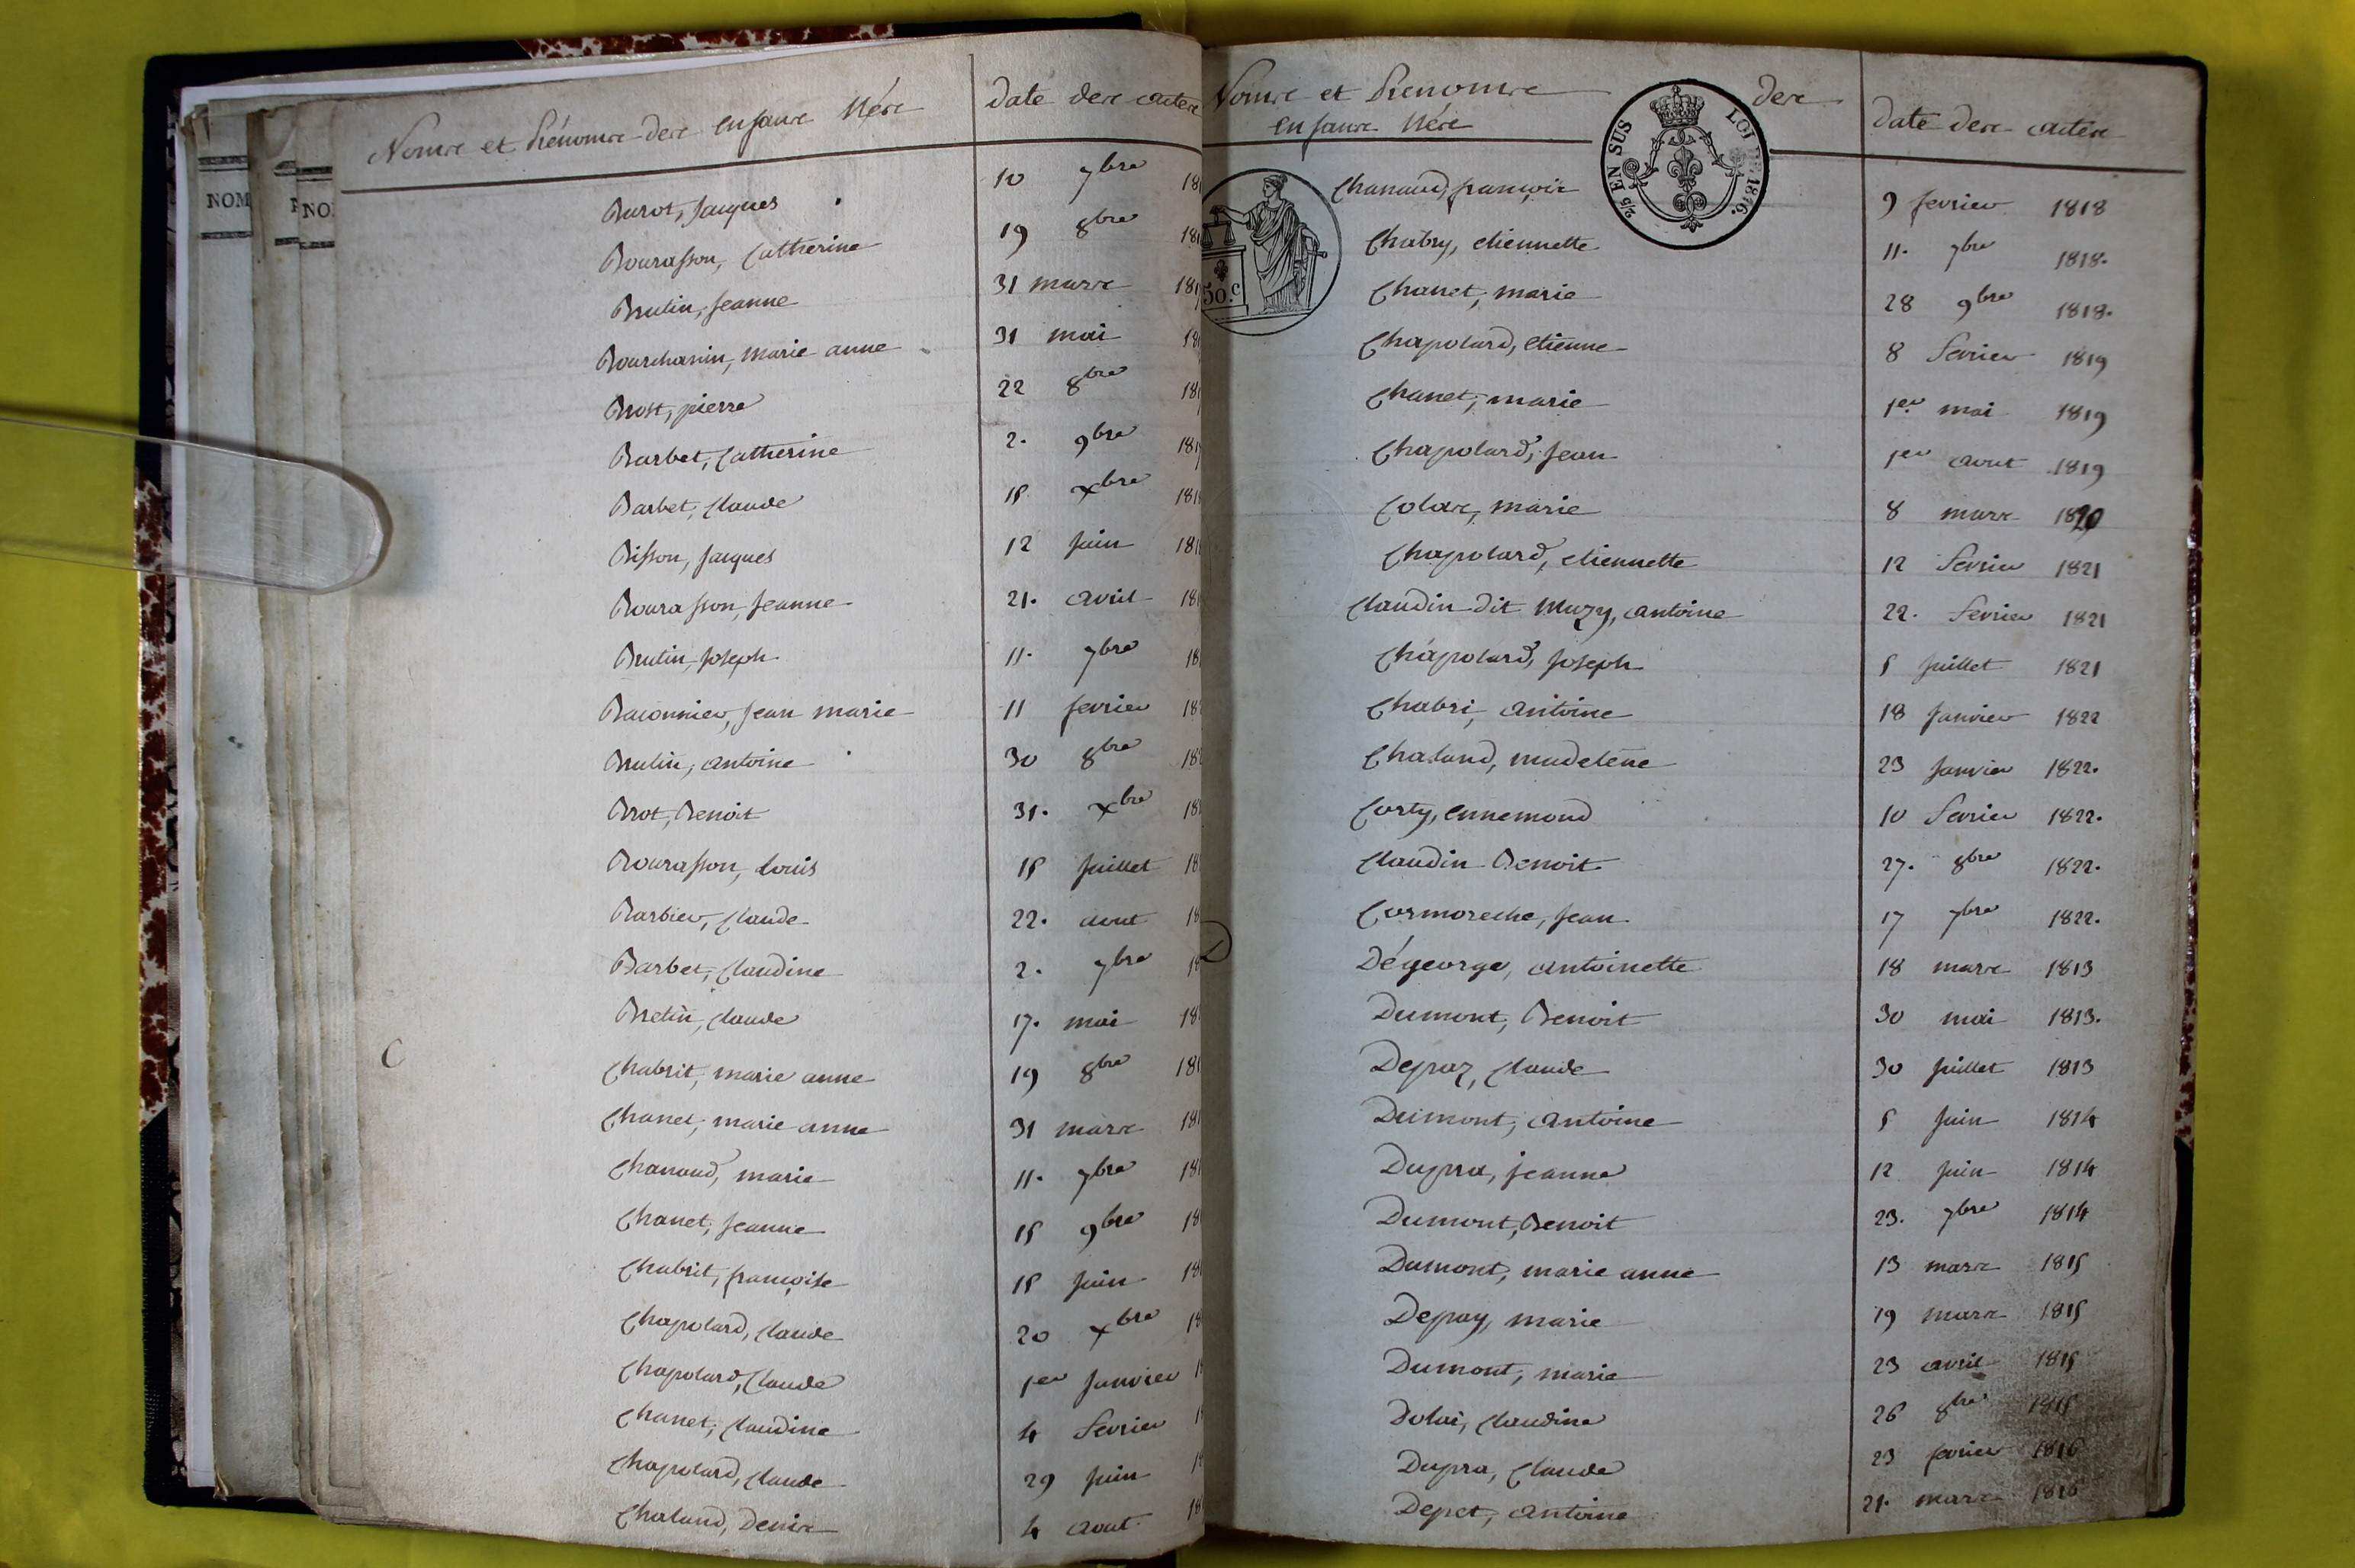 NOM
NO
Noms et Prénoms des enfans Nés
date des actes
Burot, Jacques 10 7bre 18
Bourasson, Catherine 19 8bre 18
Brulin, Jeanne 31 mars 18
Bourchanin, marie anne 31 mai 18
Brost, pierre 22 8bre 18
Barbet, Catherine 2. 9bre 181
Barbet, Claude 15 xbre 181
Bisson, Jacques 12 Juin 18
Bourasson, Jeanne 21. avril 18
Brulin, Joseph 11. 7bre 18
Baconnier, Jean marie 11 fevrier 18
Brulin, antoine 30 8bre 18
Brot, Benoit 31. xbre 18
Bourasson, Louis 15 Juillet 18
Barbier, Claude 22. aout 18
Barbet, Claudine 2. 7bre 18
Bretin, Claude 17. mai 18
C
Chabrit, marie anne 19 8bre 181
Chanet, marie anne 31 mars 18
Chanaud, marie 11. 7bre 18
Chanet, Jeanne 15 9bre 18
Chabrit, françoise 15 Juin 18
Chapolard, Claude 20 xbre 18
Chapolard, Claude 1er Janvier 1
Chanet, Claudine 4 fevrier 1
Chapolard, Claude 29 Juin 1
Chaland, Denis 4 aout 18
Noms et Prenoms des
enfans Nés
date des actes
2/5 EN SUS LOI DE 1816.
50.c
Chanaud, françois 9 fevrier 1818
Chabry, etiennette 11. 7bre 1818.
Chanet, marie 28 9bre 1818.
Chapolard, etienne 8 fevrier 1819
Chanet, marie 1er mai 1819
Chapolard, Jean 1er aout 1819
Colas, marie 8 mars 1820
Chapolard, etiennette 12 fevrier 1821
Claudin dit Muzy, antoine 22. fevrier 1821
Chapolard, Joseph 5 Juillet 1821
Chabri, antoine 18 Janvier 1822
Chaland, madelène 23 Janvier 1822.
Corty, ennemond 10 fevrier 1822.
Claudin Benoit 27. 8bre 1822.
Cormoreche, Jean 17 7bre 1822.
D
Dégeorge, antoinette 18 mars 1813
Dumont, Benoit 30 mai 1813.
Depraz, Claude 30 Juillet 1813
Dumont, antoine 5 Juin 1814
Dupra, jeanne 12 Juin 1814
Dumont, Benoit 23. 7bre 1814
Dumont, marie anne 13 mars 1815
Depay, marie 19 mars 1815
Dumont, marie 23 avril 1815
Dolai, Claudine 26 8bre 1815
Dupra, Claude 23 fevrier 1816
Depret, antoine 21. mars 1816